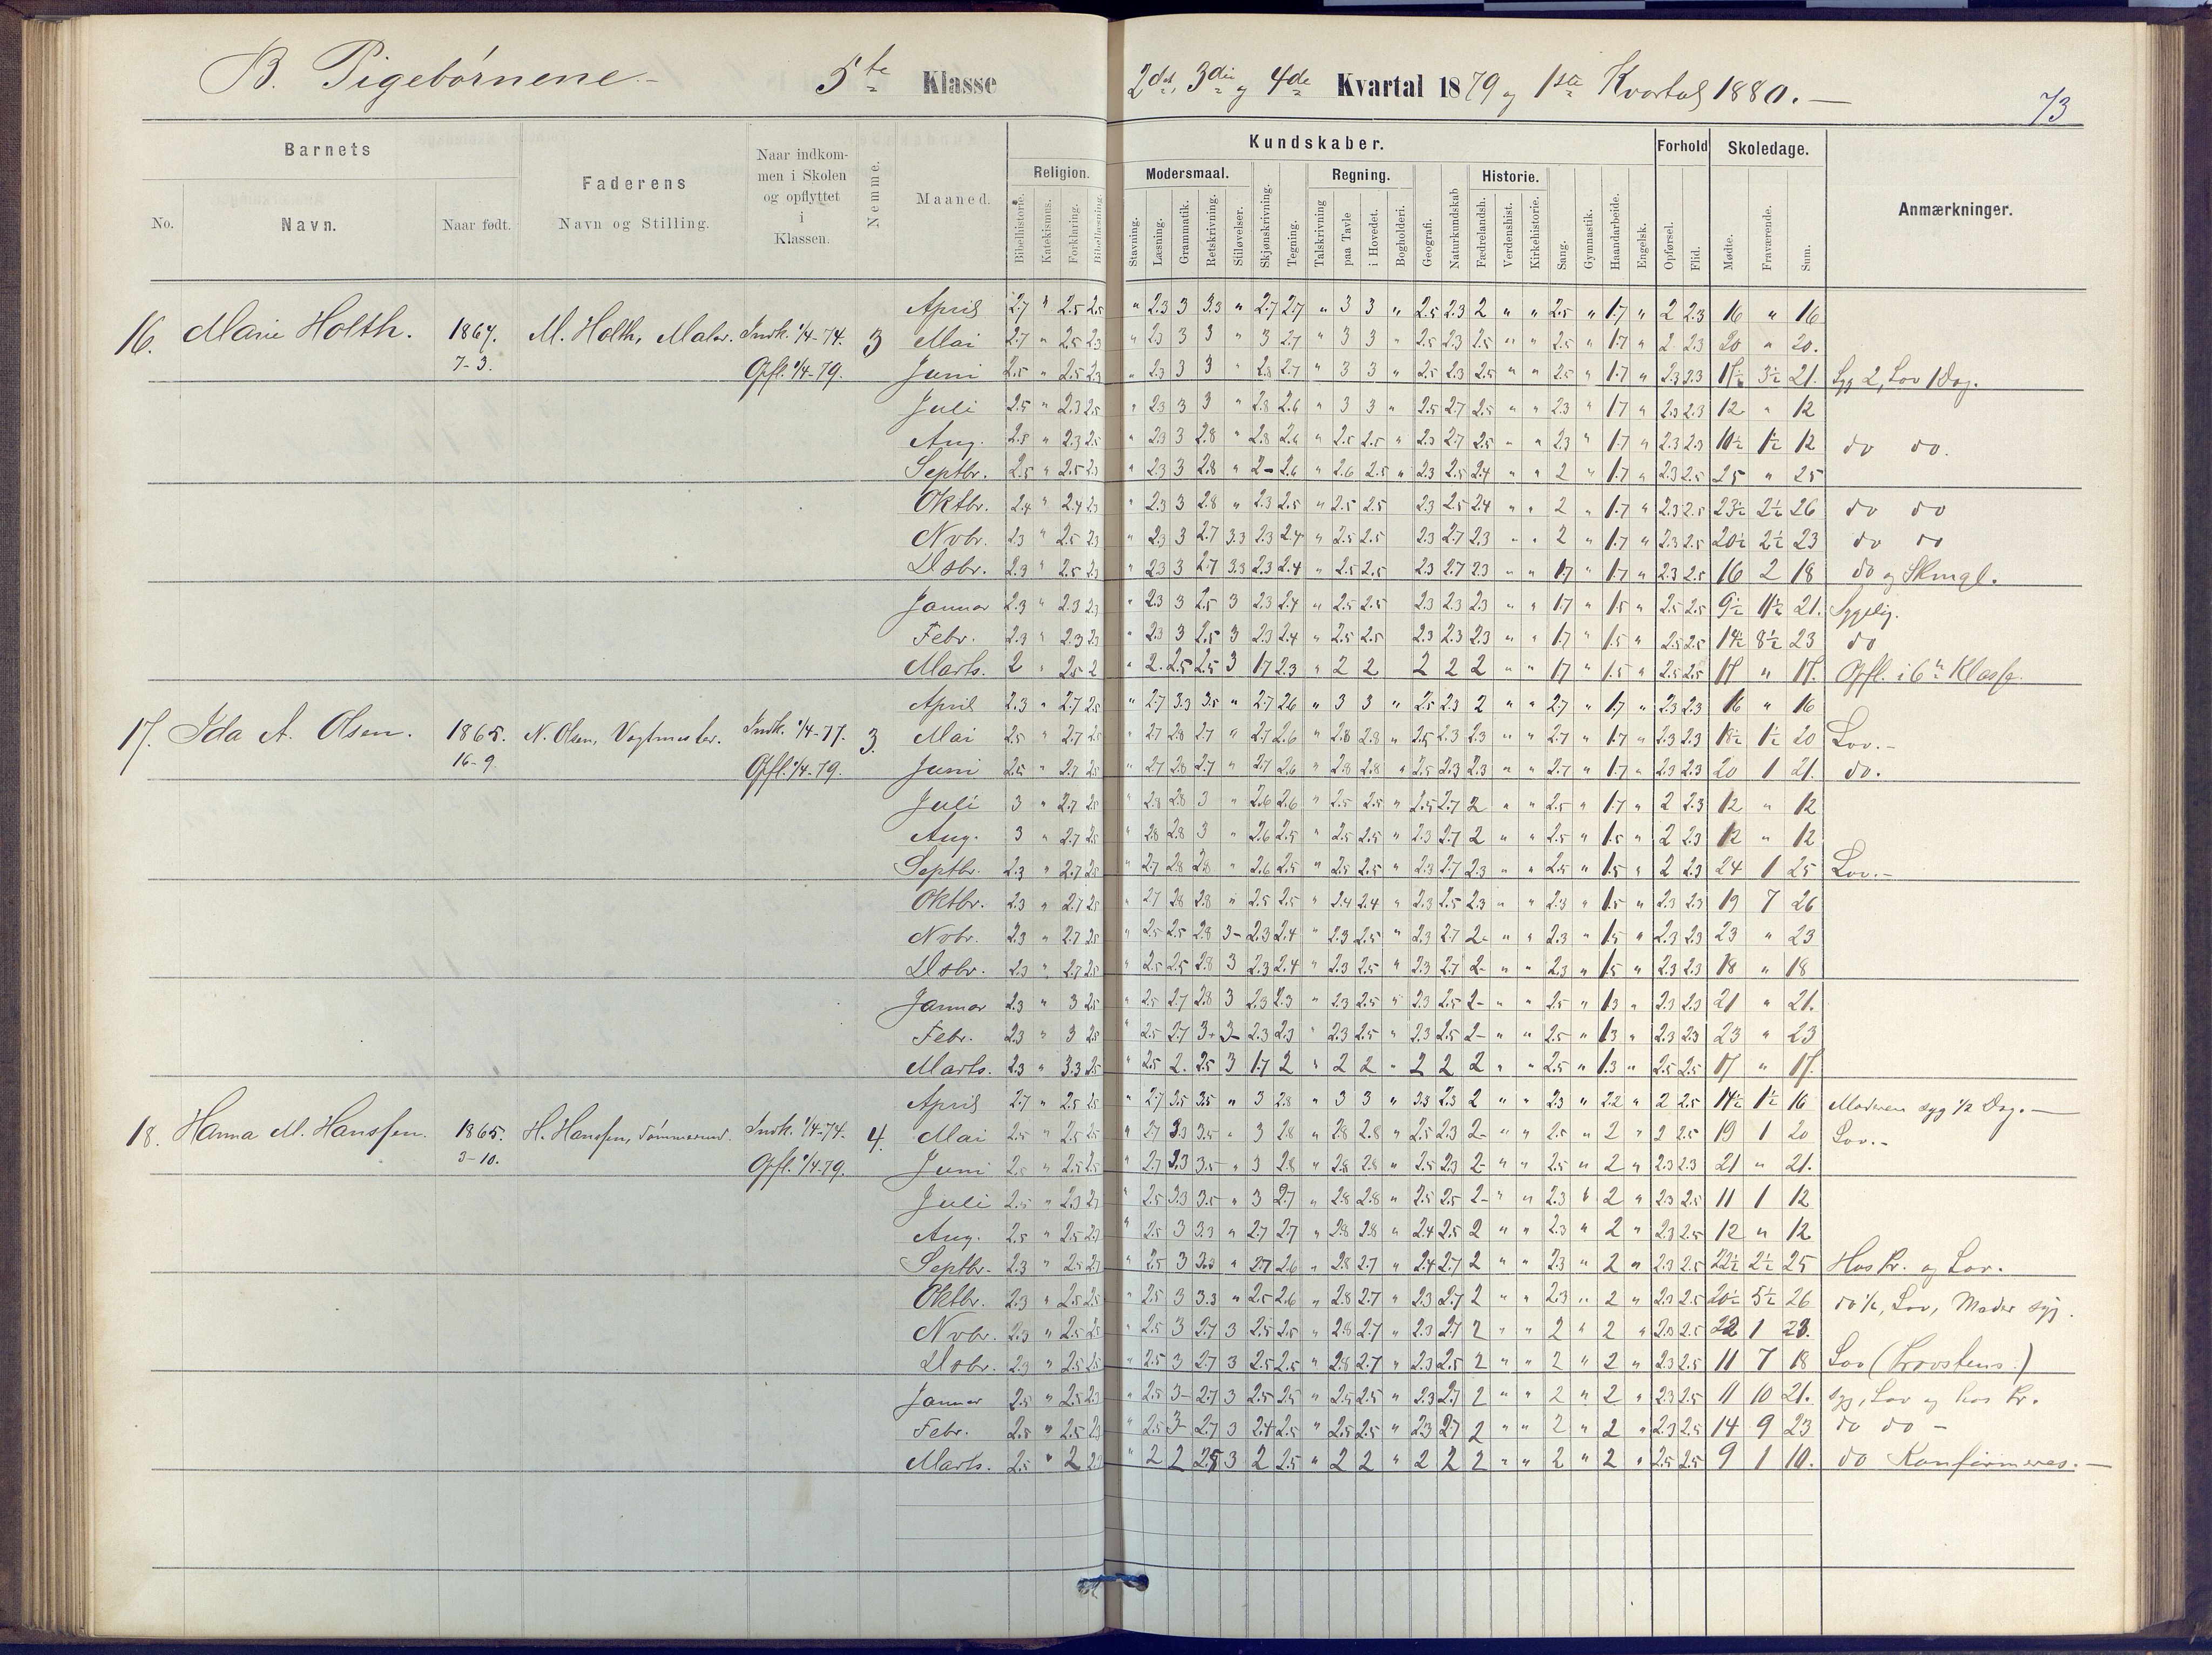 B. Pigebørnene.- 5te Klasse 2det, 3die og 4de Kvartal 1879 og 1ste Kvartal 1880.—
73
Barnets
No. Navn. Naar født.
Faderens
Navn og Stilling.
Naar indkom-
men i Skolen
og opflyttet
i
Klassen.
Nemme.
Maaned.
Kundskaber.
Religion.
Bibelhistorie. Katekismus. Forklaring. Bibellæsning.
Modersmaal.
Stavning. Læsning. Grammatik. Retskrivning. Stiløvelser.
Skjønskrivning. Tegning.
Regning.
Talskrivning paa Tavle i Hovedet. Bogholderi.
Geografi. Naturkundskab
Historie.
Fædrelandsh. Verdenshist. Kirkehistorie.
Sang. Gymnastik. Haandarbeide. Engelsk.
Forhold
Opførsel. Flid.
Skoledage.
Mødte. Fraværende. Sum.
Anmærkninger.
April 2.7 " 2.5 2.5 " 2.3 3 3.3 " 2.7 2.7 " 3 3 " 2.5 2.3 2 " " 2.5 " 1.7 " 2 2.3 16 " 16
16. Marie Holth. 1867. M. Holth, Maler. Indk. 1/4-74. 3 Mai 2.7 " 2.5 2.3 " 2.3 3 3 " 3 2.7 " 3 3 " 2.5 2.3 2.5 " " 2.5 " 1.7 " 2 2.3 20 " 20.
7-3. Opfl. 1/4-79. Juni 2.5 " 2.5 2.3 " 2.3 3 3 " 2.8 2.7 " 3 3 " 2.5 2.3 2.5 " " 2.5 " 1.7 " 2.3 2.3 17½ 3½ 21. Syg 2, Lov 1 Dag.
Juli 2.5 " 2.3 2.5 " 2.3 3 3 " 2.8 2.6 " 3 3 " 2.5 2.7 2.5 " " 2.3 " 1.7 " 2.3 2.3 12 " 12
Aug. 2.5 " 2.3 2.5 " 2.3 3 2.8 " 2.8 2.6 " 2.5 2.5 " 2.3 2.7 2.5 " " 2.3 " 1.7 " 2.3 2.3 10½ 1½ 12 do do.
Septbr. 2.5 " 2.5 2.3 " 2.3 3 2.8 " 2- 2.6 " 2.6 2.5 " 2.3 2.5 2.4 " " 2 " 1.7 " 2.3 2.5 25 " 25
Oktbr. 2.4 " 2.4 2.3 " 2.3 3 2.8 " 2.3 2.5 " 2.5 2.5 2.3 2.5 2.4 " " 2 " 1.7 " 2.3 2.5 23½ 2½ 26 do do
Nvbr. 2.3 " 2.5 2.3 " 2.3 3 2.7 3.3 2.3 2.4 " 2.5 2.5 2.3 2.7 2.3 " " 2 " 1.7 " 2.3 2.5 20½ 2½ 23 do do
Dsbr. 2.3 " 2.5 2.3 " 2.3 3 2.7 3.3 2.3 2.4 " 2.5 2.5 2.3 2.7 2.3 " " 1.7 " 1.7 " 2.3 2.5 16 2 18 do og Skmgl.
Januar 2.3 " 2.3 2.3 " 2.3 3 2.5 3 2.3 2.4 " 2.5 2.5 2.3 2.3 2.3 " " 1.7 " 1.5 " 2.5 2.5 9½ 11½ 21. Sygelig.
Febr. 2.3 " 2.3 2.3 " 2.3 3 2.5 3 2.3 2.4 " 2.5 2.5 2.3 2.3 2.3 " " 1.7 " 1.5 " 2.5 2.5 14½ 8½ 23 do
Marts. 2 " 2.5 2 " 2. 2.5 2.5 3 1.7 2.3 " 2 2 2 2 2 " " 1.7 " 1.5 " 2.5 2.5 17 " 17. Opfl. i 6te Klasse.
April 2.3 " 2.7 2.5 " 2.7 3.3 3.5 " 2.7 2.6 " 3 3 " 2.5 2.3 2 " " 2.7 " 1.7 " 2.3 2.3 16 " 16
17. Ida A. Olsen. 1865. N. Olsen, Vagtmester. Indk. 1/4-77. 3. Mai 2.5 " 2.7 2.5 " 2.7 2.8 2.7 " 2.7 2.6 " 2.8 2.8 " 2.5 2.3 2.3 " " 2.7 " 1.7 " 2.3 2.3 18½ 1½ 20 Lov.-
16-9. Opfl. 1/4-79. Juni 2.5 " 2.7 2.5 " 2.7 2.8 2.7 " 2.7 2.6 " 2.8 2.8 " 2.5 2.3 2.3 " " 2.7 " 1.7 " 2.3 2.3 20 1 21. do.
Juli 3 " 2.7 2.5 " 2.8 2.8 3 " 2.6 2.6 " 2.5 2.5 " 2.5 2.7 2 " " 2.5 " 1.7 " 2 2.3 12 " 12
Aug. 3 " 2.7 2.5 " 2.8 2.8 3 " 2.6 2.5 " 2.5 2.5 " 2.3 2.7 2 " " 2.5 " 1.5 " 2 2.3 12 " 12
Septbr. 2.3 " 2.7 2.5 " 2.7 2.8 2.8 " 2.6 2.5 " 2.5 2.5 " 2.3 2.7 2.3 " " 2.5 " 1.5 " 2 2.3 24 1 25 Lov.-
Oktbr. 2.3 " 2.7 2.5 " 2.7 2.8 2.8 " 2.5 2.5 " 2.4 2.4 " 2.3 2.5 2.3 " " 2.3 " 1.5 " 2.3 2.3 19 7 26
Nvbr. 2.3 " 2.7 2.5 " 2.5 2.5 2.8 3- 2.3 2.4 " 2.3 2.5 " 2.3 2.7 2- " " 2.3 " 1.5 " 2.3 2.3 23 " 23
Dsbr. 2.3 " 2.7 2.5 " 2.5 2.5 2.8 3 2.3 2.4 " 2.3 2.5 " 2.3 2.7 2- " " 2.3 " 1.5 " 2.3 2.3 18 " 18
Januar 2.3 " 3 2.5 " 2.5 2.7 2.8 3 2.3 2.3 " 2.3 2.5 " 2.3 2.5 2- " " 2.5 " 1.3 " 2.3 2.3 21 " 21.
Febr. 2.3 " 3 2.5 " 2.5 2.7 3+ 3- 2.3 2.3 " 2.3 2.5 " 2.3 2.5 2- " " 2.5 " 1.3 " 2.3 2.3 23 " 23
Marts. 2.3 " 3.3 2.5 " 2.5 2. 2.5 3 1.7 2 " 2 2 " 2 2 2 " " 2.5 " 1.3 " 2.5 2.5 17 " 17.
April 2.7 " 2.5 2.5 " 2.7 3.5 3.5 " 3 2.8 " 3 3 " 3.3 2.3 2 " " 2.3 " 2.2 " 2 2.5 14½ 1½ 16 Moderen syg 1/2 Dag.—
18. Hanna M. Hanssen. 1865. H. Hanssen, Tømmermd. Indk. 1/4-74. 4. Mai 2.5 " 2.5 2.5 " 2.7 3.3 3.5 " 3 2.8 " 2.8 2.8 " 2.5 2.3 2- " " 2.5 " 2 " 2 2.5 19 1 20 Lov.-
3-10. Opfl. 1/4-79. Juni 2.5 " 2.5 2.5 " 2.7 3.3 3.5 " 3 2.8 " 2.8 2.8 " 2.5 2.3 2- " " 2.5 " 2 " 2.3 2.3 21 " 21.
Juli 2.5 " 2.3 2.3 " 2.5 3.3 3.5 " 3 2.7 " 2.8 2.8 " 2.5 2.5 2- " " 2.3 " 2 " 2.3 2.5 11 1 12
Aug. 2.5 " 2.5 2.3 " 2.5 3 3.3 " 2.7 2.7 " 2.8 2.8 " 2.4 2.5 2 " " 2.3 " 2 " 2.3 2.5 12 " 12
Septbr. 2.3 " 2.5 2.3 " 2.5 3 3.3 " 2.7 2.6 " 2.8 2.7 " 2.4 2.7 2 " " 2.3 " 2 " 2.3 2.5 22½ 2½ 25 Hos Pr. og Lov.
Oktbr. 2.3 " 2.5 2.5 " 2.5 3 3.3 " 2.5 2.6 " 2.8 2.7 " 2.3 2.7 2 " " 2.3 " 2 " 2.3 2.5 20½ 5½ 26 do ½, Lov, Moder syg.
Nvbr. 2.3 " 2.5 2.5 " 2.5 3 2.7 3 2.5 2.5 " 2.8 2.7 " 2.3 2.7 2 " " 2 " 2 " 2.3 2.5 22 1 23.
Dsbr. 2.3 " 2.5 2.5 " 2.5 3 2.7 3 2.5 2.5 " 2.8 2.7 " 2.3 2.5 2 " " 2 " 2 " 2.3 2.5 11 7 18 Lov (Provstens:)
Januar 2.5 " 2.5 2.3 " 2.5 3- 2.7 3 2.5 2.5 " 2.5 2.5 " 2.3 2.7 2 " " 2 " 2 " 2.3 2.5 11 10 21. syg, Lov og hos Pr.
Febr. 2.5 " 2.5 2.3 " 2.5 3- 2.7 3 2.4 2.5 " 2.5 2.5 " 2.3 2.7 2 " " 2 " 2 " 2.3 2.5 14 9 23 do do -
Marts. 2.5 " 2 2.3 " 2 2 2.5 3 2 2.5 " 2 2 " 2 2 2 " " 2 " 2 " 2.5 2.5 9 1 10. do Konfirmeres.—